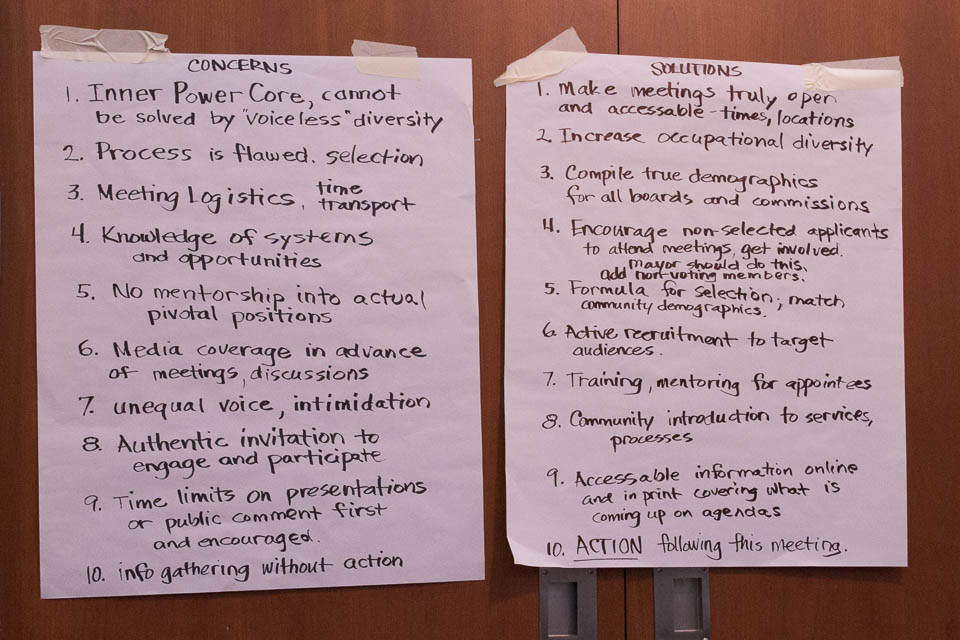 CONCERNS
1. Inner Power Core, cannot
be solved by "voiceless" diversity
2. Process is flawed. selection
3. Meeting Logistics, time
transport
4. Knowledge of systems
and opportunities
5. No mentorship into actual
pivotal positions
6. Media coverage in advance
of meetings, discussions
7. unequal voice, intimidation
8. Authentic invitation to
engage and participate
9. Time limits on presentations
or public comment first
and encouraged.
10. info gathering without action
SOLUTIONS
1. Make meetings truly open
and accessable - times, locations
2. Increase occupational diversity
3. Compile true demographics
for all boards and commissions
4. Encourage non-selected applicants
to attend meetings, get involved.
mayor should do this.
add non-voting members.
5. Formula for selection; match
community demographics.
6. Active recruitment to target
audiences.
7. Training, mentoring for appointees
8. Community introduction to services,
processes
9. Accessable information online
and in print covering what is
coming up on agendas
10. ACTION following this meeting.